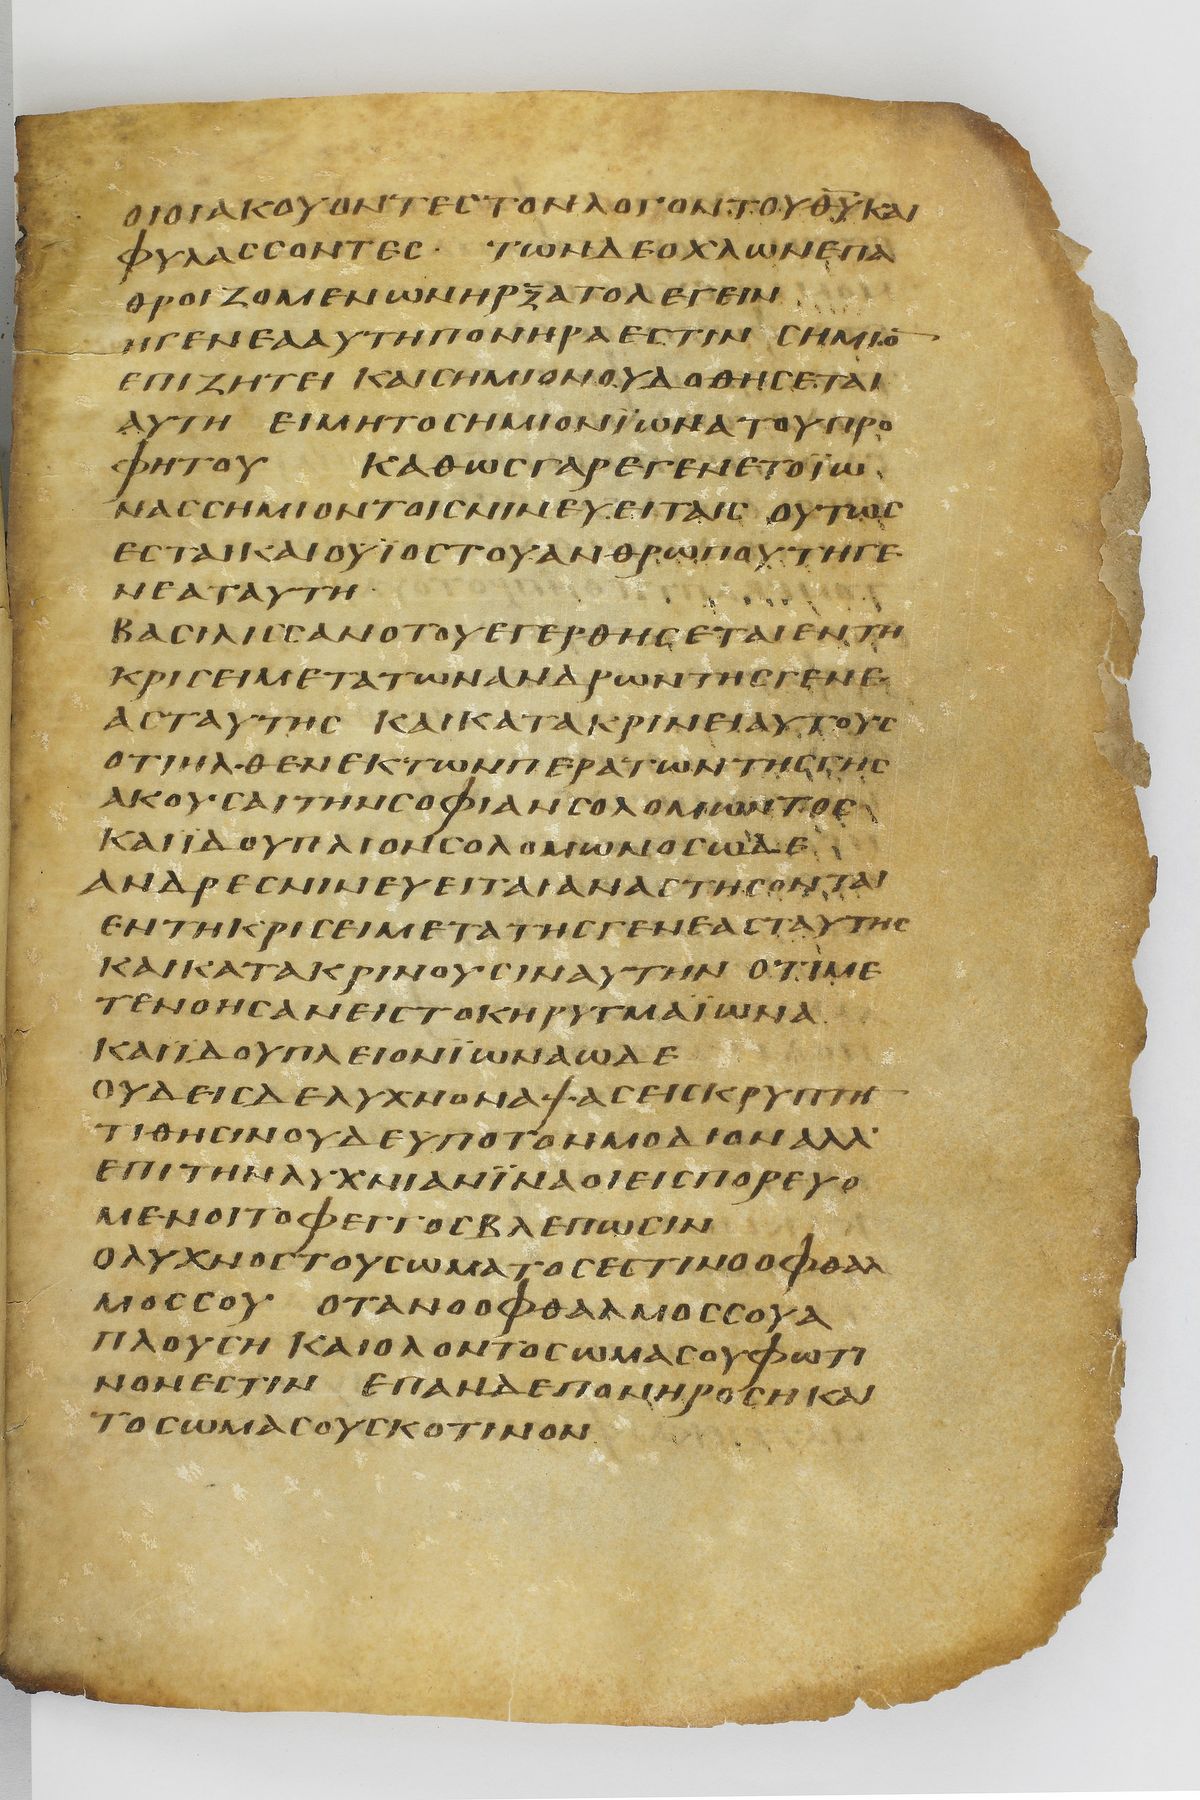 ΟΙΟΙΑΚΟΥΟΝΤΕΣΤΟΝΛΟΓΟΝΤΟΥΘΥΚΑΙ
ΦΥΛΑΣΣΟΝΤΕΣ· ΤΩΝΔΕΟΧΛΩΝΕΠΑ
ΘΡΟΙΖΟΜΕΝΩΝΗΡΞΑΤΟΛΕΓΕΙΝ
ΗΓΕΝΕΑΑΥΤΗΠΟΝΗΡΑΕΣΤΙΝ ΣΗΜΙΟ̅
ΕΠΙΖΗΤΕΙ ΚΑΙΣΗΜΙΟΝΟΥΔΟΘΗΣΕΤΑΙ
ΑΥΤΗ ΕΙΜΗΤΟΣΗΜΙΟΝΪΩΝΑΤΟΥΠΡΟ
ΦΗΤΟΥ ΚΑΘΩΣΓΑΡΕΓΕΝΕΤΟΪΩ
ΝΑΣΣΗΜΙΟΝΤΟΙΣΝΙΝΕΥΕΙΤΑΙΣ ΟΥΤΩΣ
ΕΣΤΑΙΚΑΙΟΥΪΟΣΤΟΥΑΝΘΡΩΠΟΥΤΗΓΕ
ΝΕΑΤΑΥΤΗ
ΒΑΣΙΛΙΣΣΑΝΟΤΟΥΕΓΕΡΘΗΣΕΤΑΙΕΝΤΗ
ΚΡΙΣΕΙΜΕΤΑΤΩΝΑΝΔΡΩΝΤΗΣΓΕΝΕ
ΑΣΤΑΥΤΗΣ ΚΑΙΚΑΤΑΚΡΙΝΕΙΑΥΤΟΥΣ
ΟΤΙΗΛΘΕΝΕΚΤΩΝΠΕΡΑΤΩΝΤΗΣΓΗΣ
ΑΚΟΥΣΑΙΤΗΝΣΟΦΙΑΝΣΟΛΟΜΩΝΤΟΣ
ΚΑΙΪΔΟΥΠΛΙΟΝΣΟΛΟΜΩΝΟΣΩΔΕ
ΑΝΔΡΕΣΝΙΝΕΥΕΙΤΑΙΑΝΑΣΤΗΣΟΝΤΑΙ
ΕΝΤΗΚΡΙΣΕΙΜΕΤΑΤΗΣΓΕΝΕΑΣΤΑΥΤΗΣ
ΚΑΙΚΑΤΑΚΡΙΝΟΥΣΙΝΑΥΤΗΝ ΟΤΙΜΕ
ΤΕΝΟΗΣΑΝΕΙΣΤΟΚΗΡΥΓΜΑΪΩΝΑ
ΚΑΙΪΔΟΥΠΛΕΙΟΝΪΩΝΑΩΔΕ
ΟΥΔΕΙΣΔΕΛΥΧΝΟΝΑΨΑΣΕΙΣΚΡΥΠΤΗ̅
ΤΙΘΗΣΙΝΟΥΔΕΥΠΟΤΟΝΜΟΔΙΟΝΑΛΛ'
ΕΠΙΤΗΝΛΥΧΝΙΑΝΪΝΑΟΙΕΙΣΠΟΡΕΥΟ
ΜΕΝΟΙΤΟΦΕΓΓΟΣΒΛΕΠΩΣΙΝ
ΟΛΥΧΝΟΣΤΟΥΣΩΜΑΤΟΣΕΣΤΙΝΟΟΦΘΑΛ
ΜΟΣΣΟΥ ΟΤΑΝΟΟΦΘΑΛΜΟΣΣΟΥΑ
ΠΛΟΥΣΗ ΚΑΙΟΛΟΝΤΟΣΩΜΑΣΟΥΦΩΤΙ
ΝΟΝΕΣΤΙΝ ΕΠΑΝΔΕΠΟΝΗΡΟΣΗΚΑΙ
ΤΟΣΩΜΑΣΟΥΣΚΟΤΙΝΟΝ